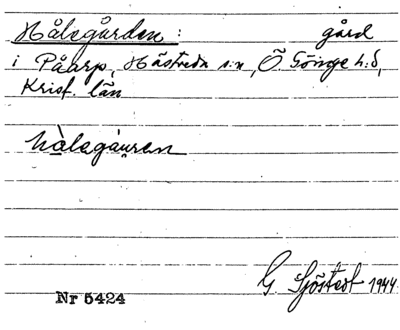 Hålegården: gård
i Påarp, Hästveda s:n, Ö Göinge h:d,
Krist. län
hàlegáu̥ren
G Sjöstedt 1944
Nr 5424